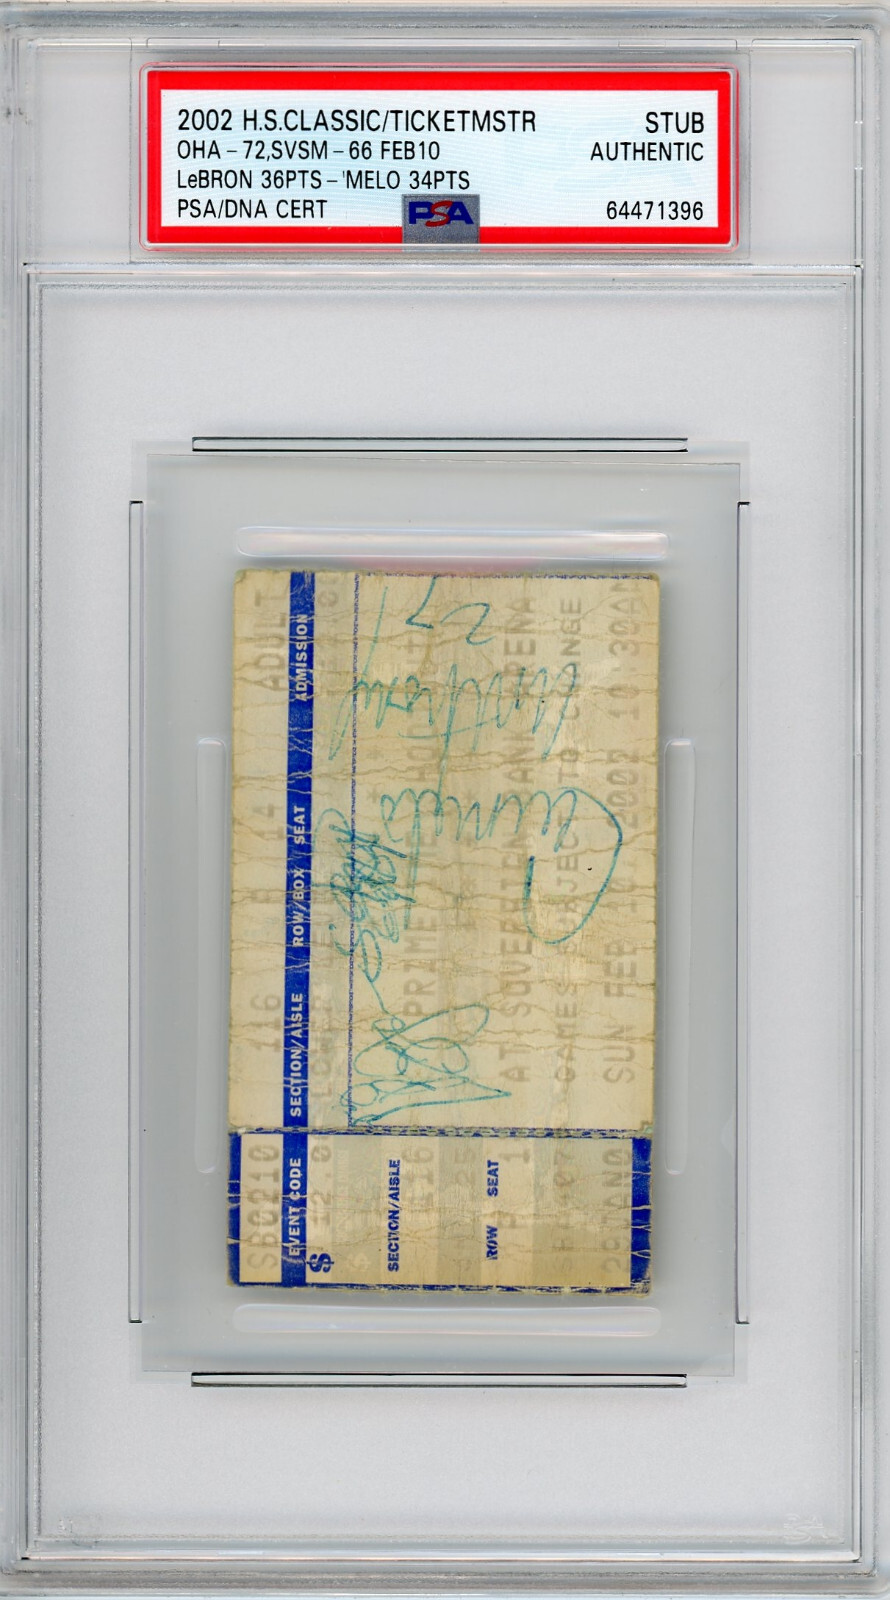 2002 H.S.CLASSIC/TICKETMSTR STUB
OHA - 72,SVSM - 66 FEB10 AUTHENTIC
LeBRON 36PTS - 'MELO 34PTS
PSA/DNA CERT PSA 64471396
116 P 14 ADULT
SECTION/AISLE ROW/BOX SEAT ADMISSION
PRIME TIME
AT SOVEREIGN BANK ARENA
GAMES SUBJECT TO CHANGE
SUN FEB 10, 2002 10:30AM
Carmelo
Anthony
SB0210
EVENT CODE
$ 12.00
SECTION/AISLE
116
ROW SEAT
P